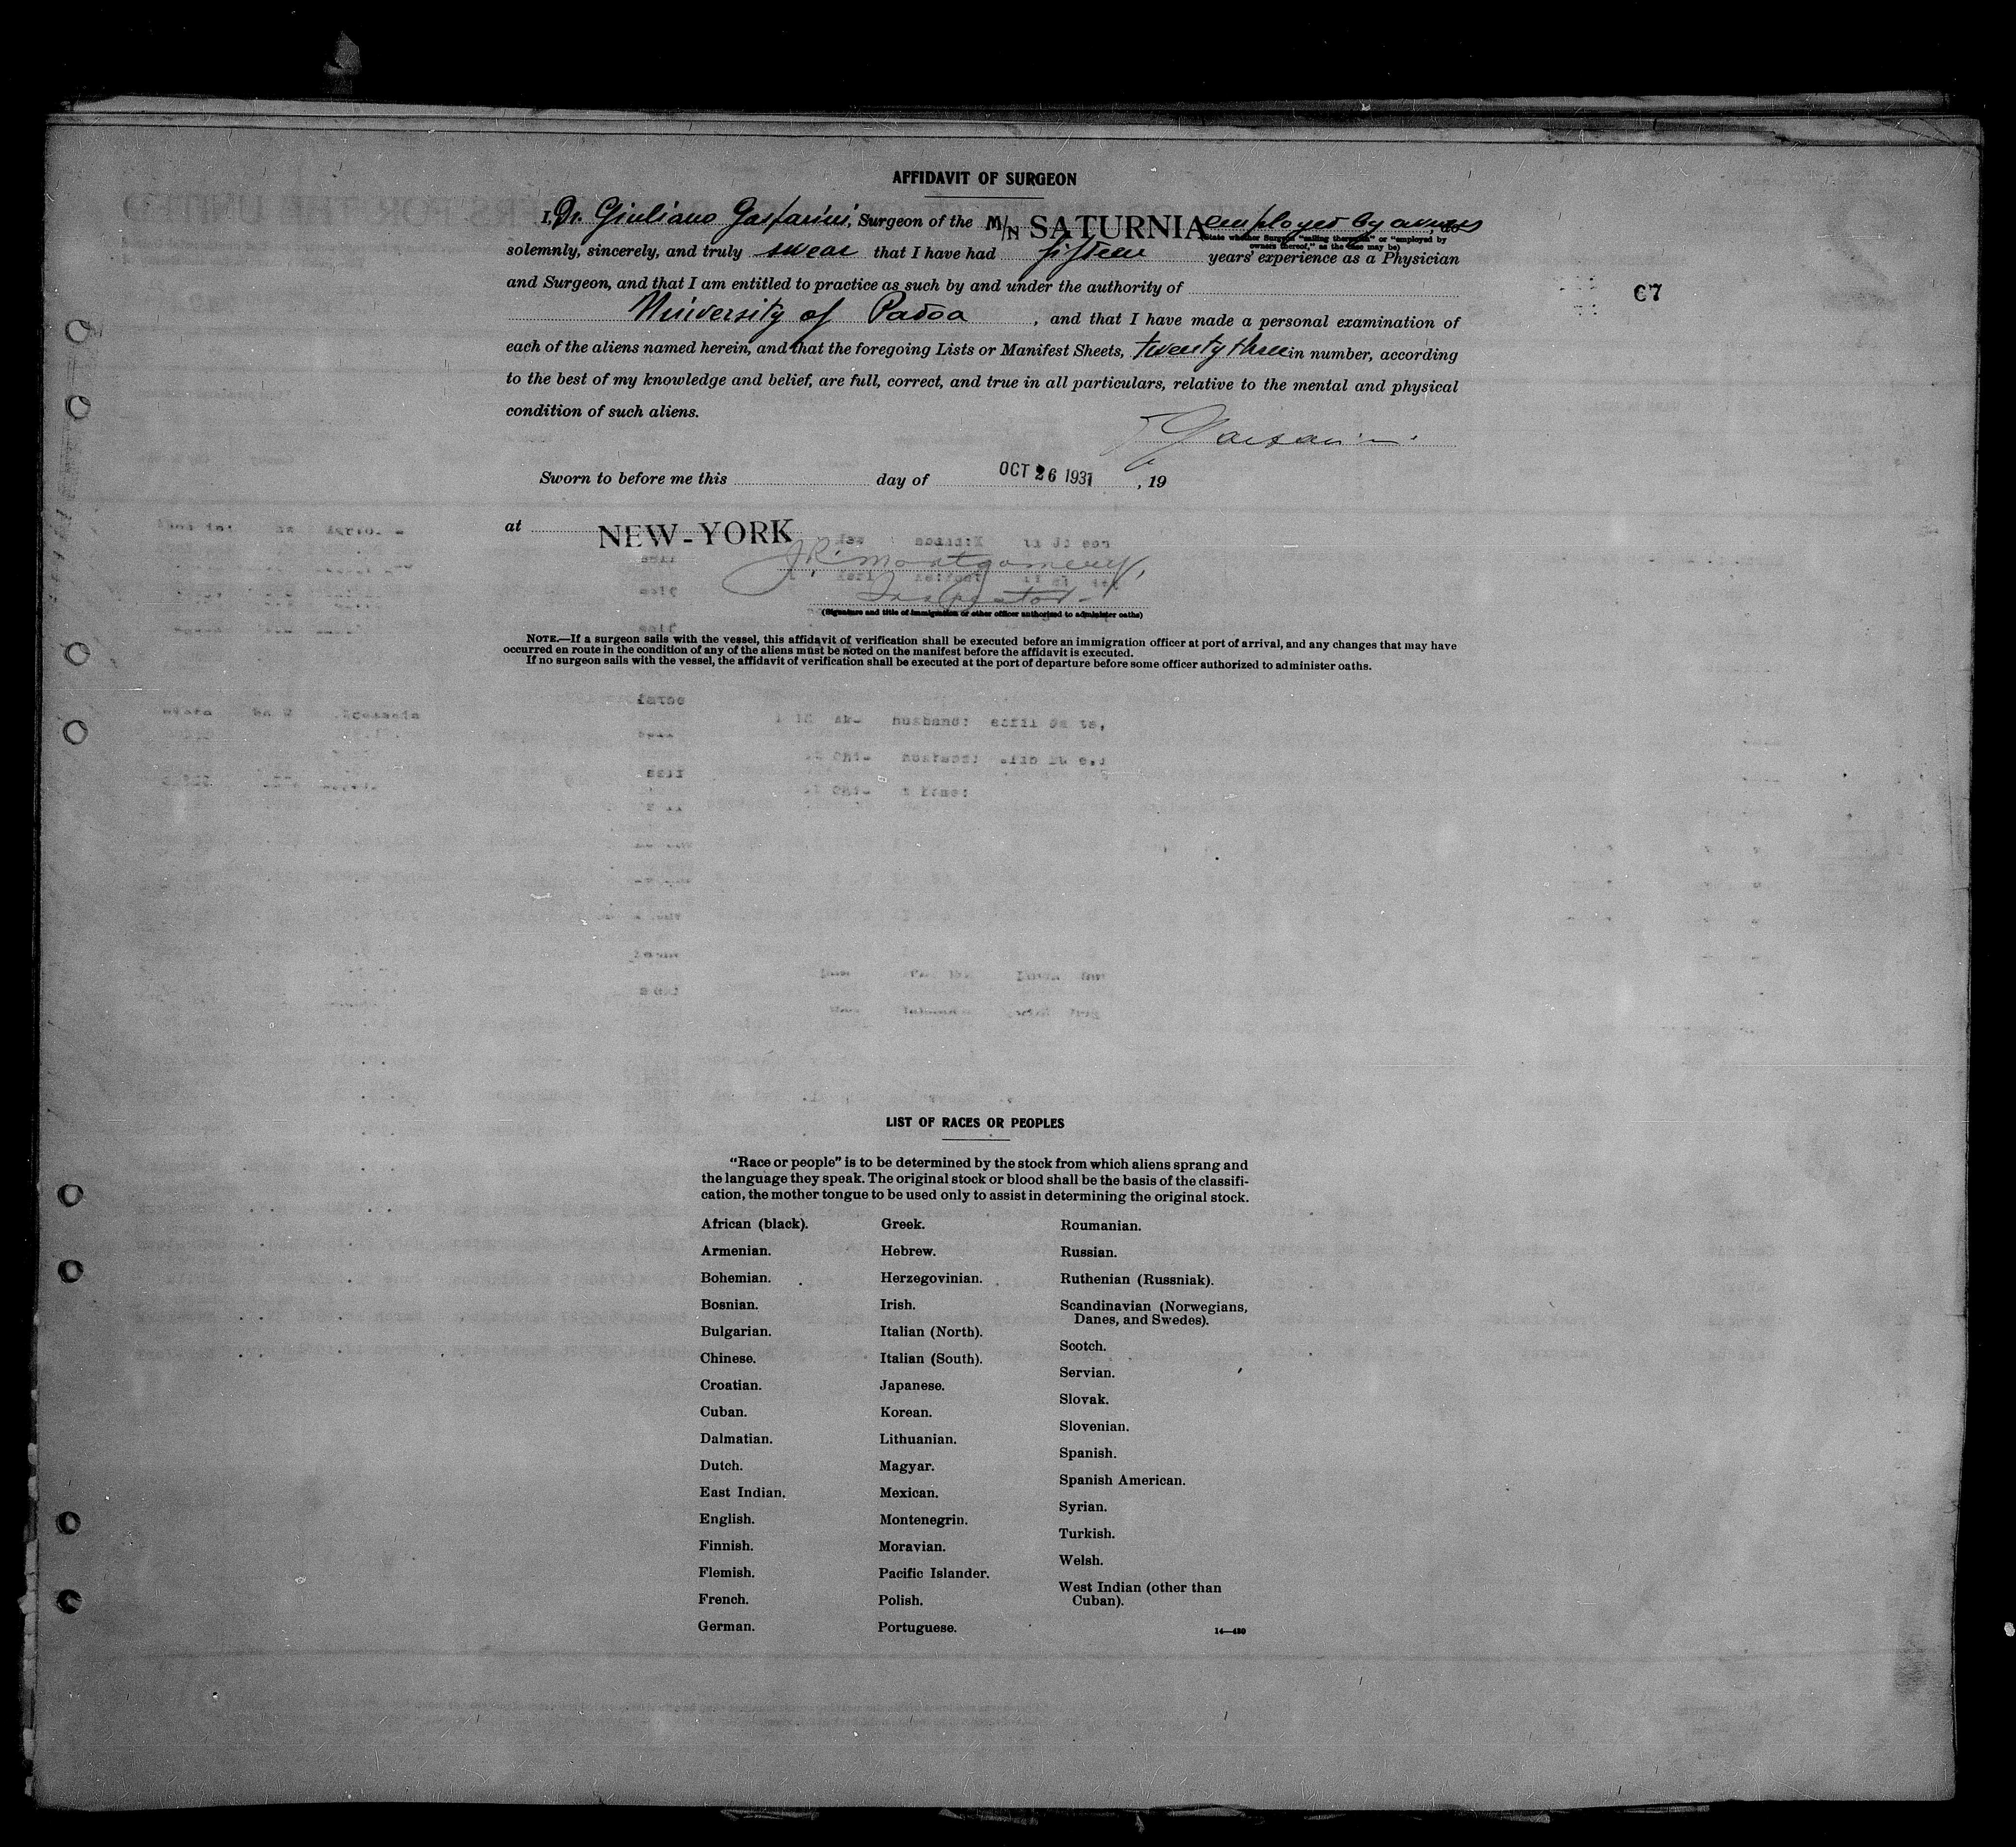 AFFIDAVIT OF SURGEON
I, Dr. Giuliano Gasparini, Surgeon of the M/N SATURNIA employed by owners do
(State whether Surgeon "sailing therewith" or "employed by owners thereof," as the case may be)
solemnly, sincerely, and truly swear that I have had fifteen years' experience as a Physician
and Surgeon, and that I am entitled to practice as such by and under the authority of
University of Padoa, and that I have made a personal examination of
each of the aliens named herein, and that the foregoing Lists or Manifest Sheets, twenty three in number, according
to the best of my knowledge and belief, are full, correct, and true in all particulars, relative to the mental and physical
condition of such aliens.
67
Gasparini
Sworn to before me this day of OCT 26 1931, 19
at NEW-YORK
J R Montgomery,
Inspector
(Signature and title of immigration or other officer authorized to administer oaths)
NOTE.—If a surgeon sails with the vessel, this affidavit of verification shall be executed before an immigration officer at port of arrival, and any changes that may have
occurred en route in the condition of any of the aliens must be noted on the manifest before the affidavit is executed.
If no surgeon sails with the vessel, the affidavit of verification shall be executed at the port of departure before some officer authorized to administer oaths.
LIST OF RACES OR PEOPLES
"Race or people" is to be determined by the stock from which aliens sprang and
the language they speak. The original stock or blood shall be the basis of the classifi-
cation, the mother tongue to be used only to assist in determining the original stock.
African (black).
Armenian.
Bohemian.
Bosnian.
Bulgarian.
Chinese.
Croatian.
Cuban.
Dalmatian.
Dutch.
East Indian.
English.
Finnish.
Flemish.
French.
German.
Greek.
Hebrew.
Herzegovinian.
Irish.
Italian (North).
Italian (South).
Japanese.
Korean.
Lithuanian.
Magyar.
Mexican.
Montenegrin.
Moravian.
Pacific Islander.
Polish.
Portuguese.
Roumanian.
Russian.
Ruthenian (Russniak).
Scandinavian (Norwegians,
Danes, and Swedes).
Scotch.
Servian.
Slovak.
Slovenian.
Spanish.
Spanish American.
Syrian.
Turkish.
Welsh.
West Indian (other than
Cuban).
14—430